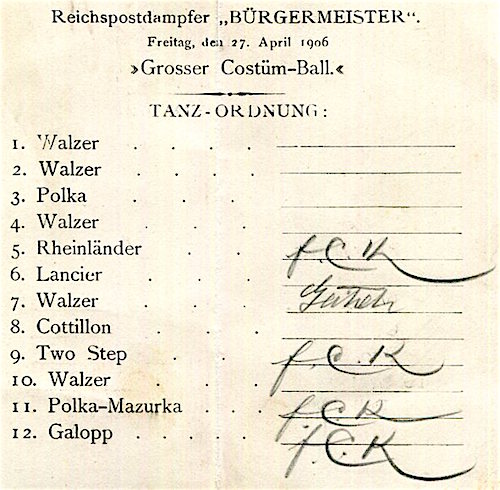 Reichspostdampfer „BÜRGERMEISTER“.
Freitag, den 27. April 1906
»Grosser Costüm-Ball.«
TANZ-ORDNUNG:
1. Walzer . . . .
2. Walzer . . . .
3. Polka . . . .
4. Walzer . . . .
5. Rheinländer . . . f. C. K
6. Lancier . . . .
7. Walzer . . . .
8. Cottillon . . . .
9. Two Step . . . f. C. K
10. Walzer . . . .
11. Polka-Mazurka . . . f. C. K
12. Galopp . . . . f. C. K